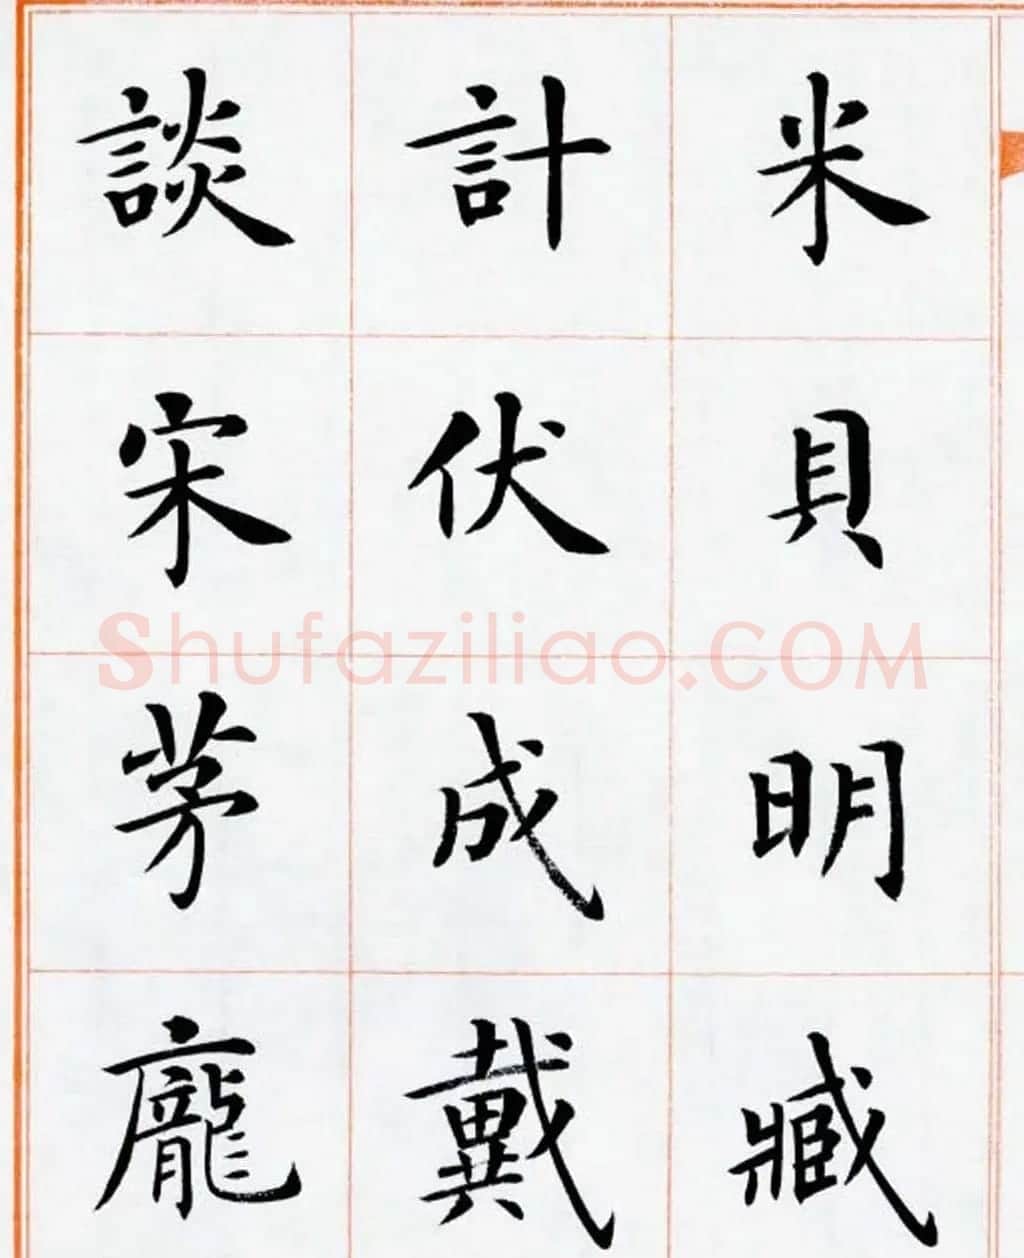 米貝明臧
計伏成戴
談宋茅龐
Shufaziliao.COM